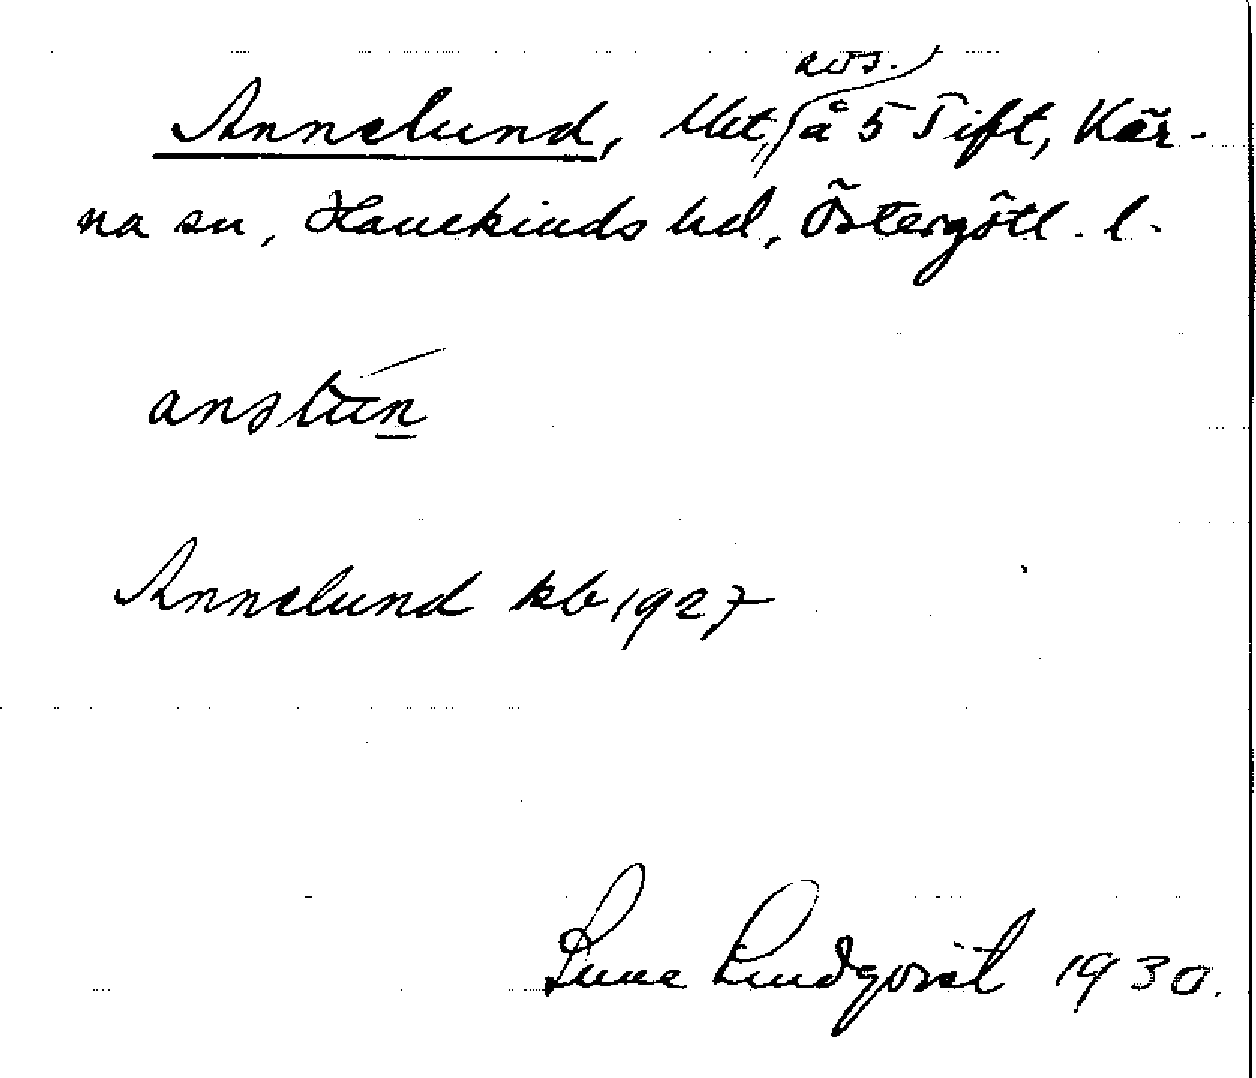 avs.
Annelund, lht, å 5 Tift, Kär-
na sn, Hanekinds hd, Östergötl. l.
anəlun
Annelund kb 1927
Sune Lindqvist 1930.